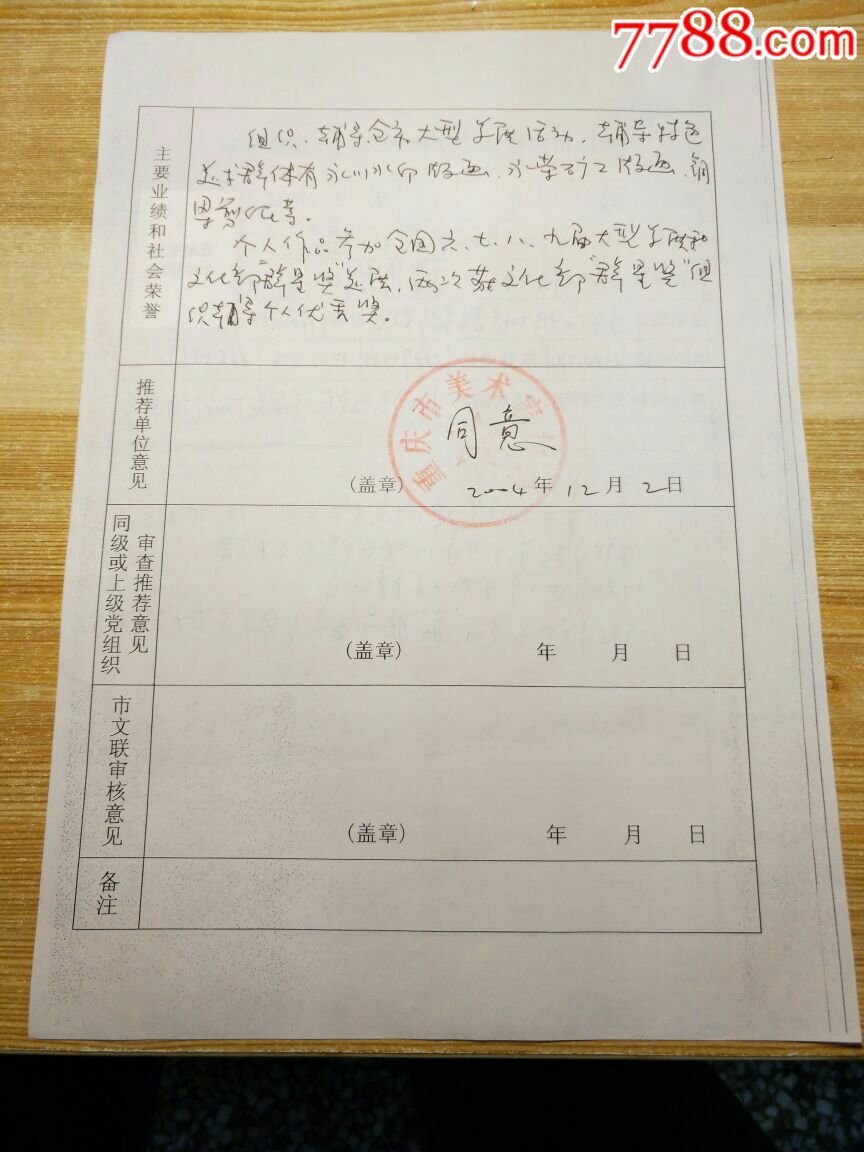 7788.com
主要业绩和社会荣誉
组织、辅导全市大型美展活动,辅导特色
美术群体有永川水印版画、永荣矿工版画、铜
梁剪纸等。
个人作品参加全国六、七、八、九届大型美展和
文化部"群星奖"美展,两次获文化部"群星奖"组
织辅导个人优秀奖。
推荐单位意见
重庆市美术
同意
(盖章) 2004年12月2日
同级或上级党组织
审查推荐意见
(盖章) 年 月 日
市文联审核意见
(盖章) 年 月 日
备注